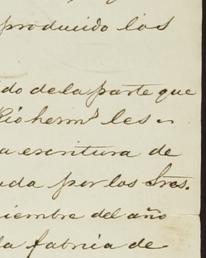 producido los
do de la parte que
Rio herm^s les
a escritura de
ada por los Sres.
iembre del año
la fabrica de